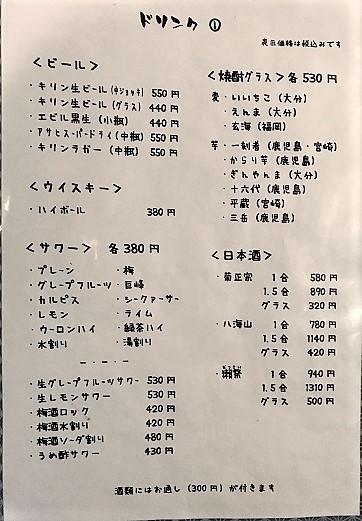 ドリンク ①
表示価格は税込みです
<ビール>
・キリン生ビール(中ジョッキ) 550円
・キリン生ビール(グラス) 440円
・エビル黒生(小瓶) 440円
・アサヒスーパードライ(中瓶) 550円
・キリンラガー(中瓶) 550円
<ウイスキー>
・ハイボール 380円
<サワー> 各380円
・プレーン ・梅
・グレープフルーツ ・巨峰
・カルピス ・シークァーサー
・レモン ・ライム
・ウーロンハイ ・緑茶ハイ
・水割り ・湯割り
・生グレープフルーツサワー 530円
・生レモンサワー 530円
・梅酒ロック 420円
・梅酒水割り 420円
・梅酒ソーダ割り 480円
・うめ酢サワー 430円
<焼酎グラス>各530円
麦・いいちこ(大分)
・えんま(大分)
・玄海(福岡)
芋・一刻者(鹿児島・宮崎)
・からり芋(鹿児島)
・ぎんやんま(大分)
・十六代(鹿児島)
・平蔵(宮崎)
・三岳(鹿児島)
<日本酒>
・菊正宗 1合 580円
1.5合 890円
グラス 320円
・八海山 1合 780円
1.5合 1140円
グラス 420円
・獺祭 1合 940円
1.5合 1310円
グラス 500円
酒類にはお通し(300円)が付きます